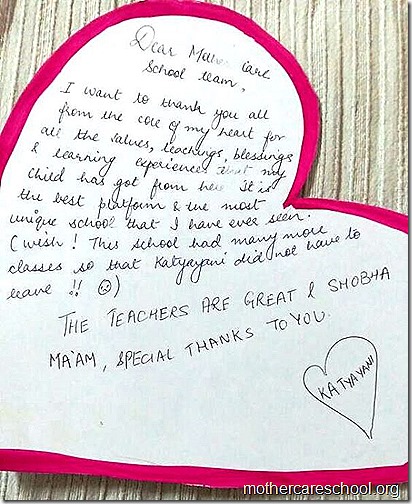 Dear Mother Care
School team,
I want to thank you all
from the core of my heart for
all the values, teachings, blessings
& learning experiences that my
child has got from here. It is
the best platform & the most
unique school that I have ever seen.
(wish! This school had many more
classes so that Katyayani did not have to
leave !! ☹)
THE TEACHERS ARE GREAT & SHOBHA
MA'AM, SPECIAL THANKS TO YOU.
KATYAYANI
mothercareschool.org